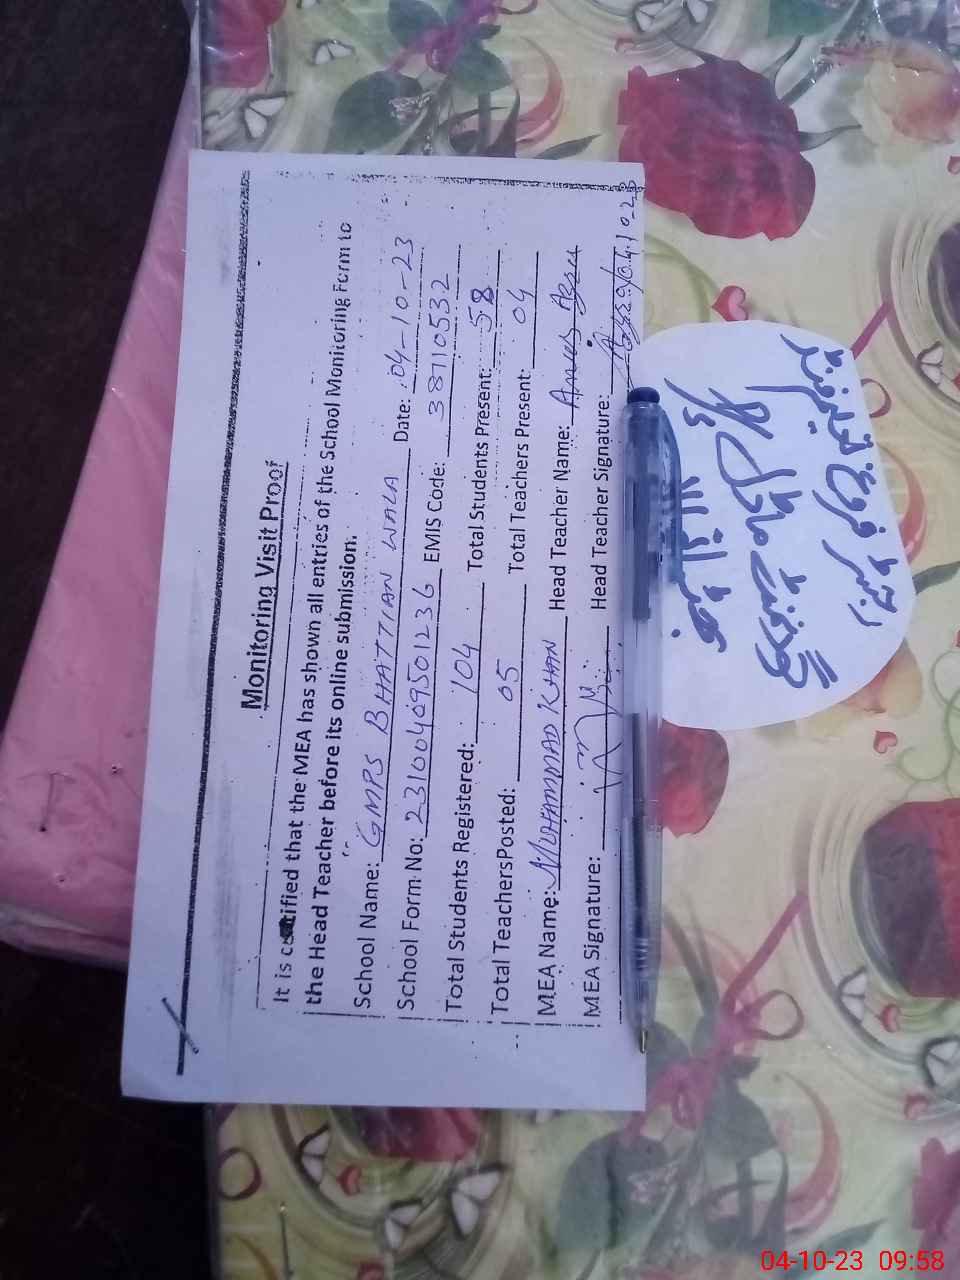 Monitoring Visit Proof
It is certified that the MEA has shown all entries of the School Monitoring Form to
the Head Teacher before its online submission.
School Name: GMPS BHATTIAN WALA Date: 04-10-23
School Form No: 23100409501236 EMIS Code: 38110532
Total Students Registered: 104 Total Students Present: 58
Total Teachers Posted: 05 Total Teachers Present: 04
MEA Name: MUHAMMAD KHAN Head Teacher Name:
MEA Signature: Head Teacher Signature: 04.10-23
رجسٹر فروغ تعلیم فنڈ
گورنمنٹ ماڈل
04-10-23 09:58